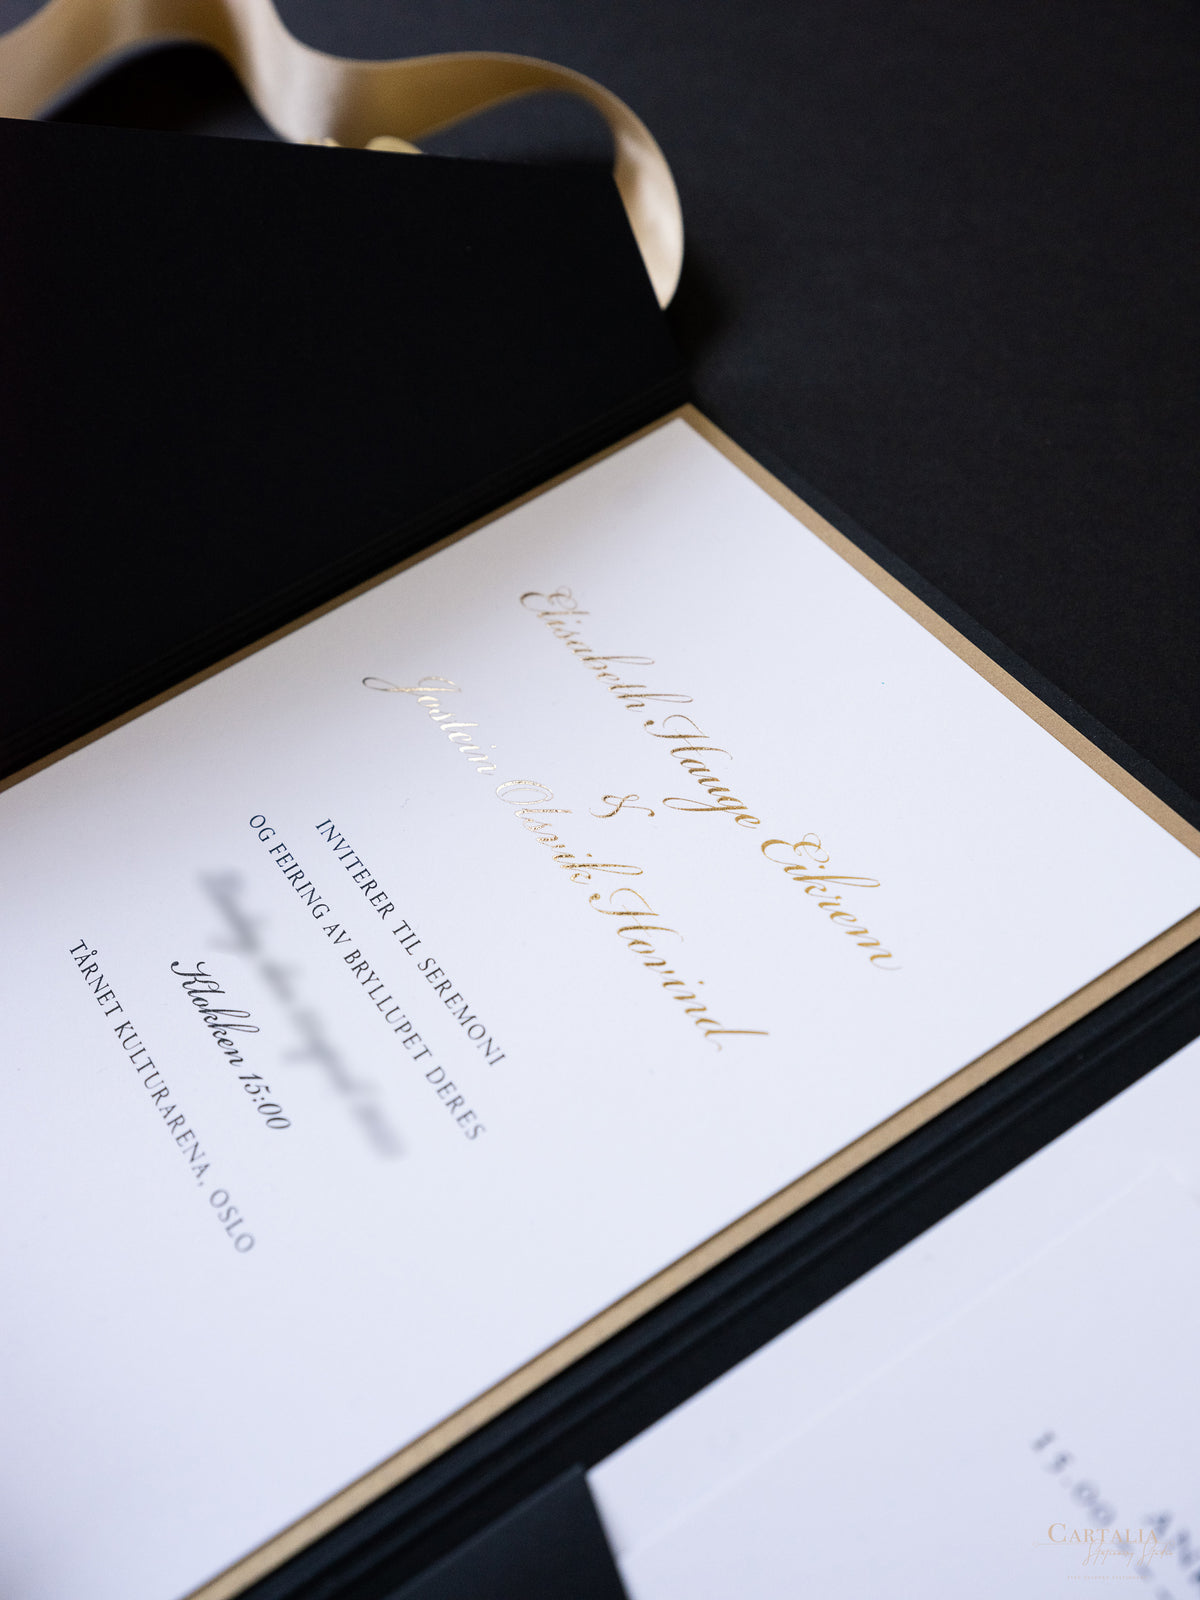 Elisabeth Hauge Eikrem
&
Jostein Olsvik Hovind
INVITERER TIL SEREMONI
OG FEIRING AV BRYLLUPET DERES
Klokken 15:00
TÅRNET KULTURARENA, OSLO
15.00
CARTALIA
Stationery Studio